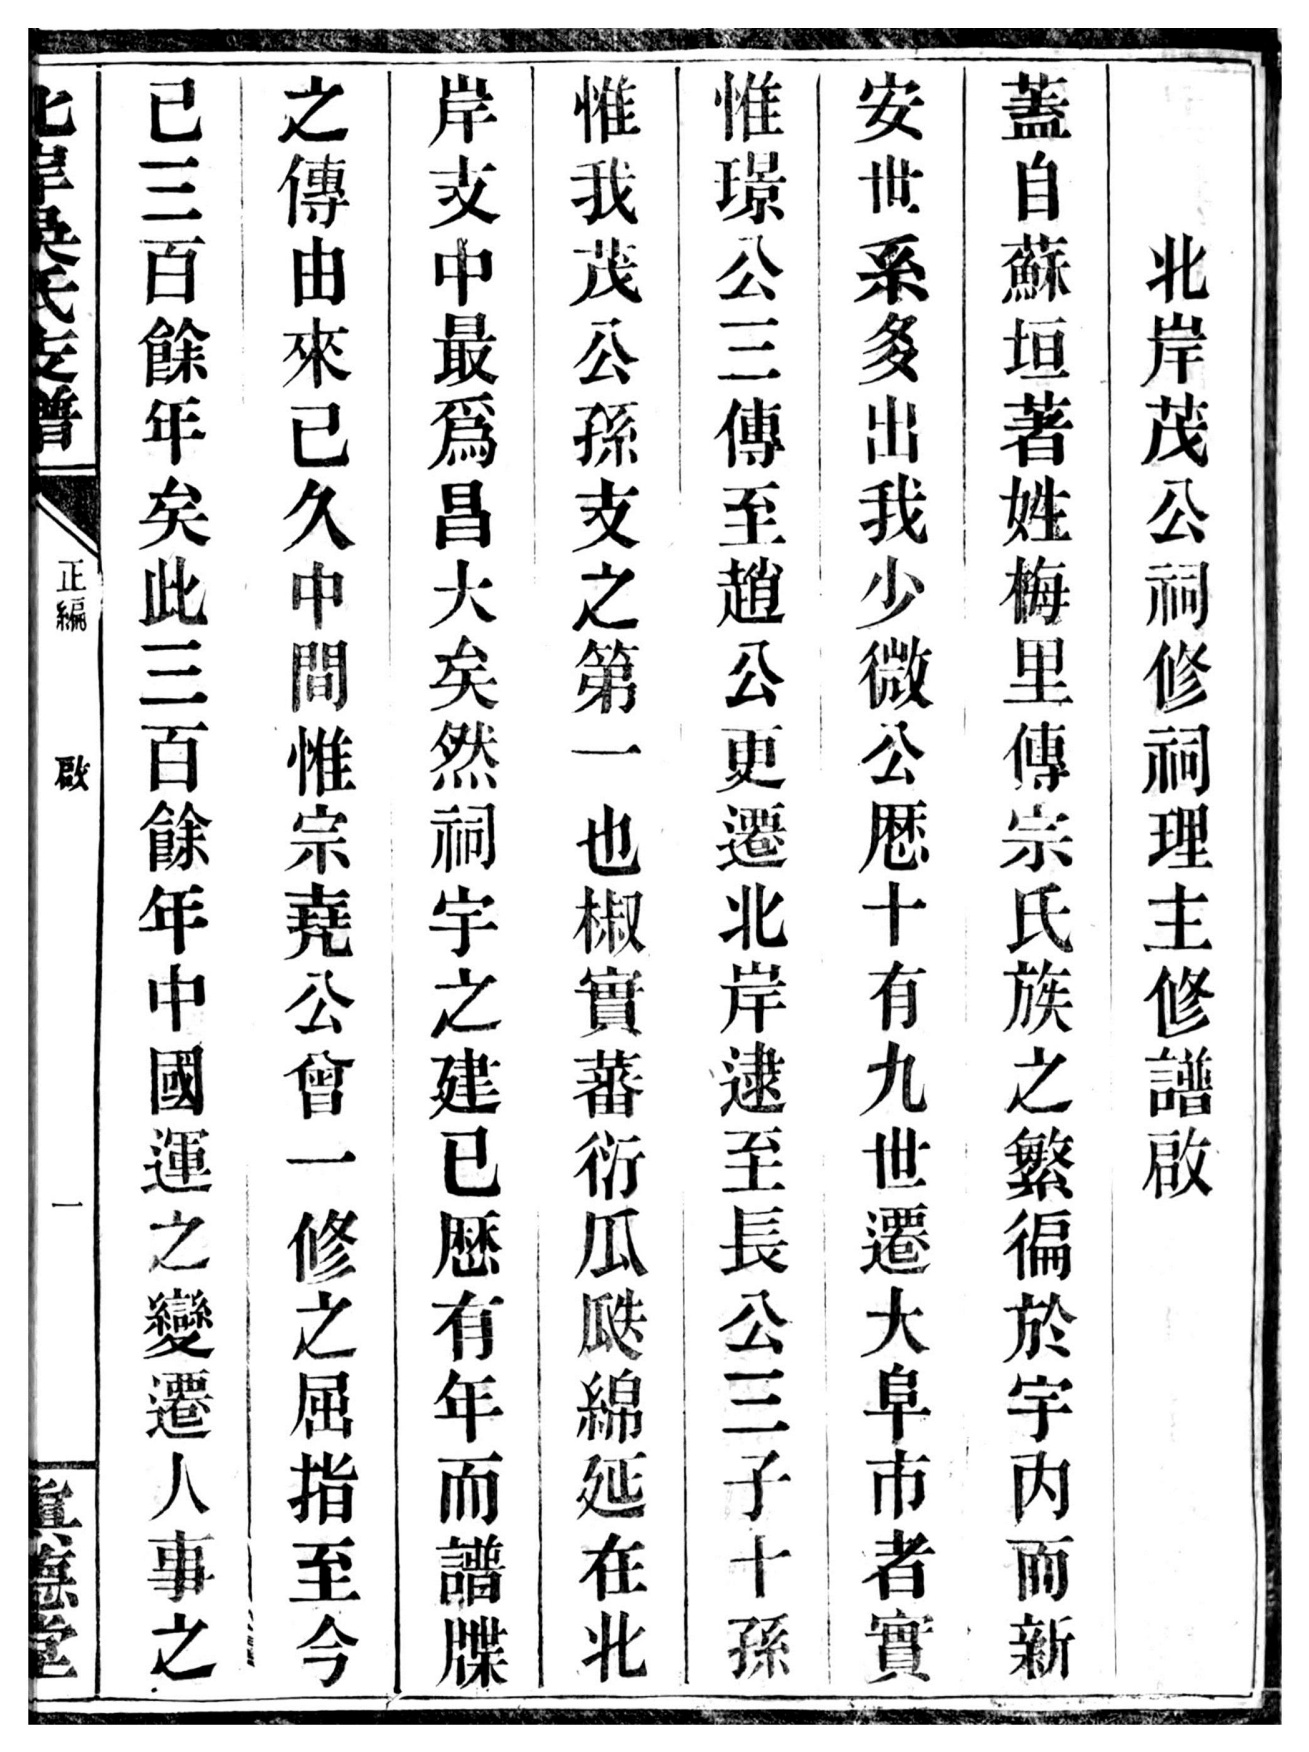 北岸茂公祠修祠理主修譜啟
蓋自蘇垣著姓梅里傳宗氏族之繁徧於宇内而新
安世系多出我少微公厯十有九世遷大阜市者實
惟璟公三傳至趙公更遷北岸逮至長公三子十孫
惟我茂公孫支之第一也椒實蕃衍瓜瓞綿延在北
岸支中最爲昌大矣然祠宇之建已厯有年而譜牒
之傳由來已久中間惟宗堯公曾一修之屈指至今
已三百餘年矣此三百餘年中國運之變遷人事之
北岸吳氏支譜
正編
啟
一
敘堂